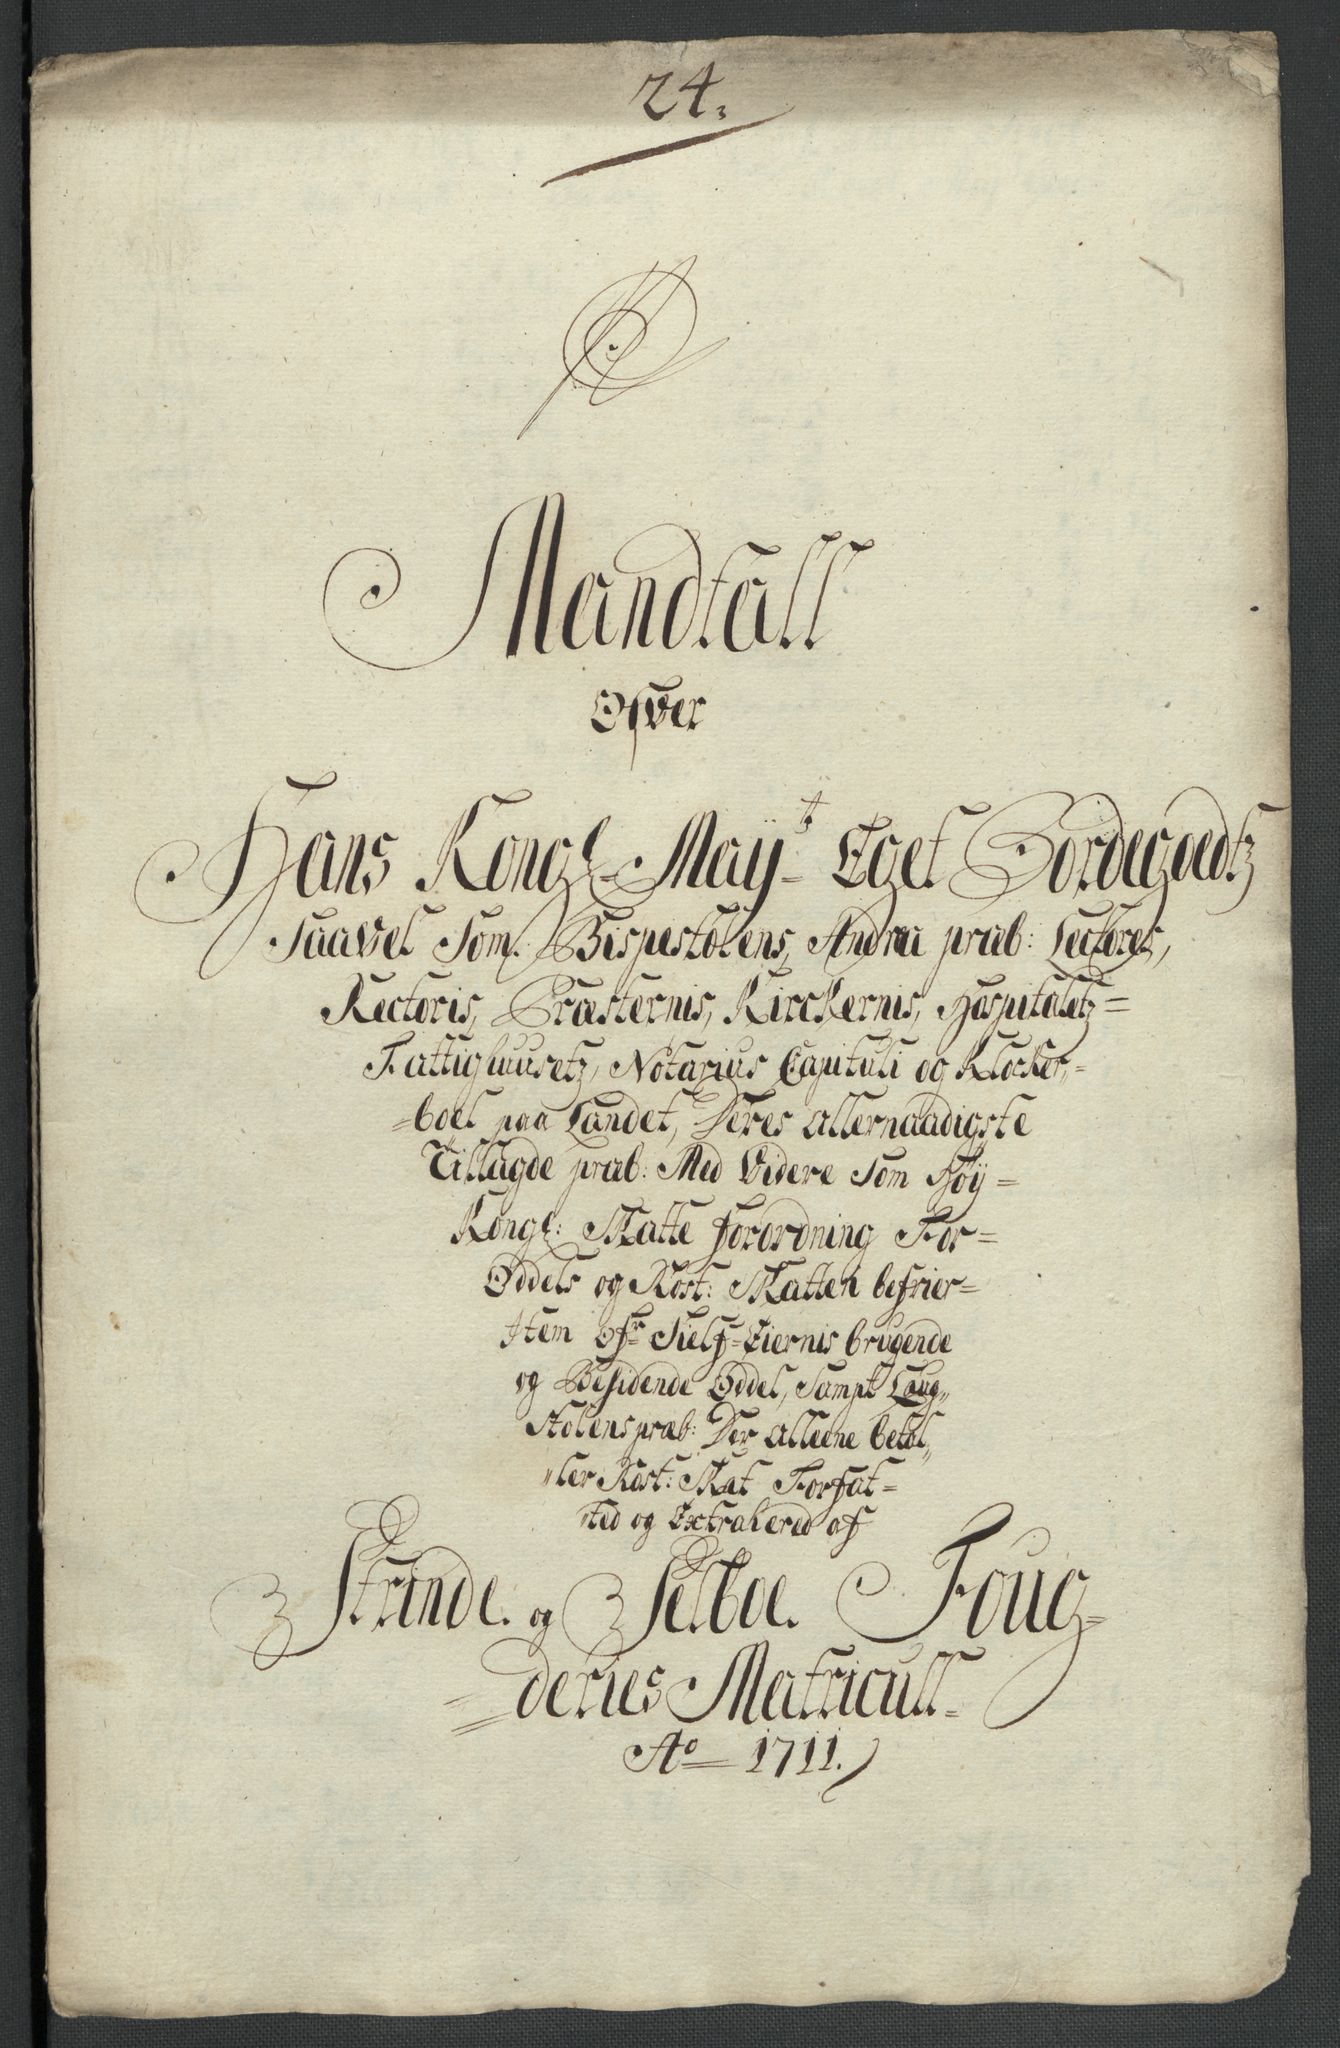 24.
Mandtall
Ofwer
Hans Kongl. Mayts Eget Gordegoedtz
Saavel Som Bispestolens, Andræ præb: Lectores,
Rectoris, Præsternis, Kirckernis, Hospitaletz=
Fattighuusetz, Notarius Capituli og Klocker,=
=boel paa Landet, Deres Allernaadigste
Tillagde præb: Med Videre Som Høy=
Kongl: Skatte forordning For=
Oddels og Rost: Skatten befrier=
Item Ofr Sielf=Eiernis brugende
og Besidende Oddel, Sampt Laug,,
Stolens præb: Der Alleene betal,,
,,ler Rost: Skat Forfat=
ted og Extrahered af
Strinde. og Selboe. Foug=
=deries Matricull.
Ao 1711.